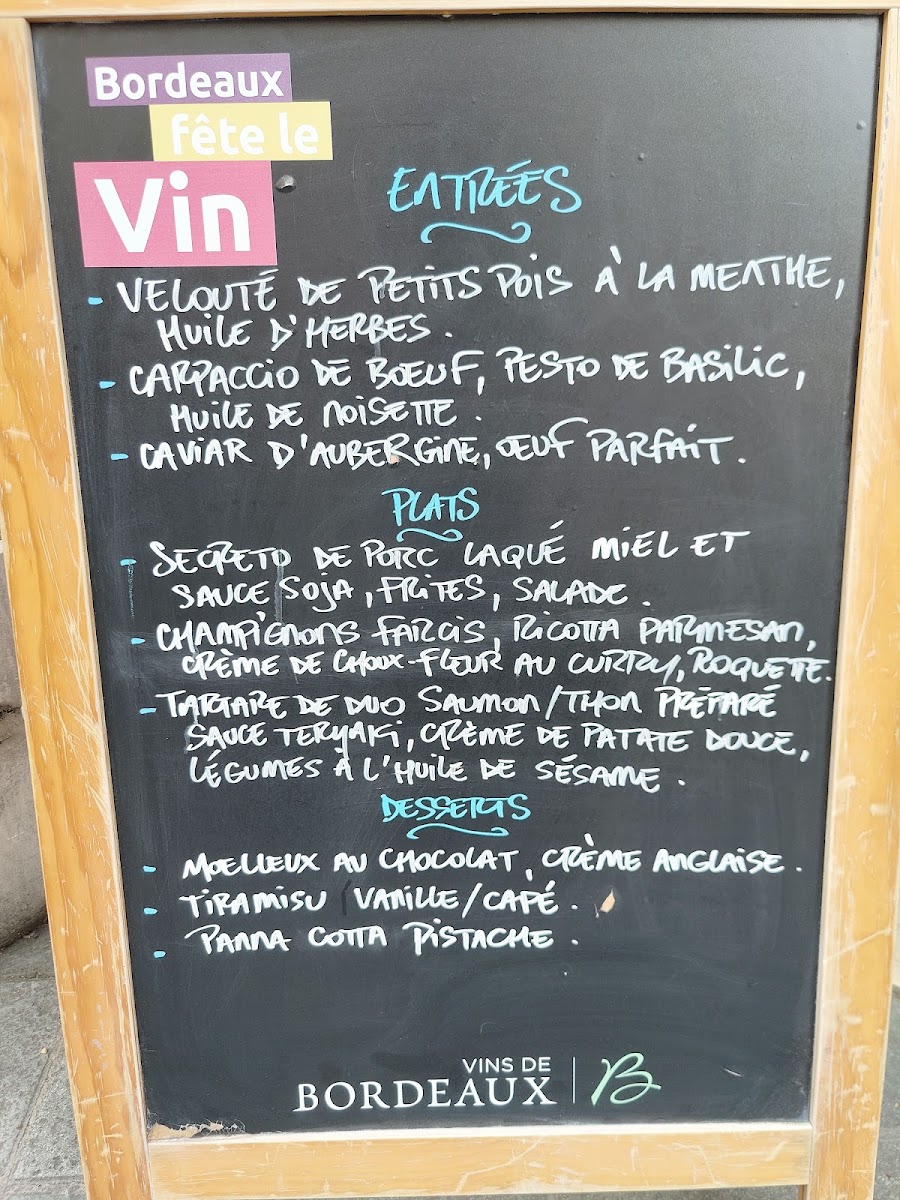 Bordeaux
fête le
Vin
ENTRÉES
- VELOUTÉ DE PETITS POIS À LA MENTHE,
HUILE D'HERBES.
- CARPACCIO DE BOEUF, PESTO DE BASILIC,
HUILE DE NOISETTE.
- CAVIAR D'AUBERGINE, ŒUF PARFAIT.
PLATS
- SECRETO DE PORC LAQUÉ MIEL ET
SAUCE SOJA, FRITES, SALADE.
- CHAMPIGNONS FARCIS, RICOTTA PARMESAN,
CRÈME DE CHOUX-FLEUR AU CURRY, ROQUETTE.
- TARTARE DE DUO SAUMON/THON PRÉPARÉ
SAUCE TERYAKI, CRÈME DE PATATE DOUCE,
LÉGUMES À L'HUILE DE SÉSAME.
DESSERTS
- MOELLEUX AU CHOCOLAT, CRÈME ANGLAISE.
- TIRAMISU VANILLE/CAFÉ.
- PANNA COTTA PISTACHE.
VINS DE
BORDEAUX | B